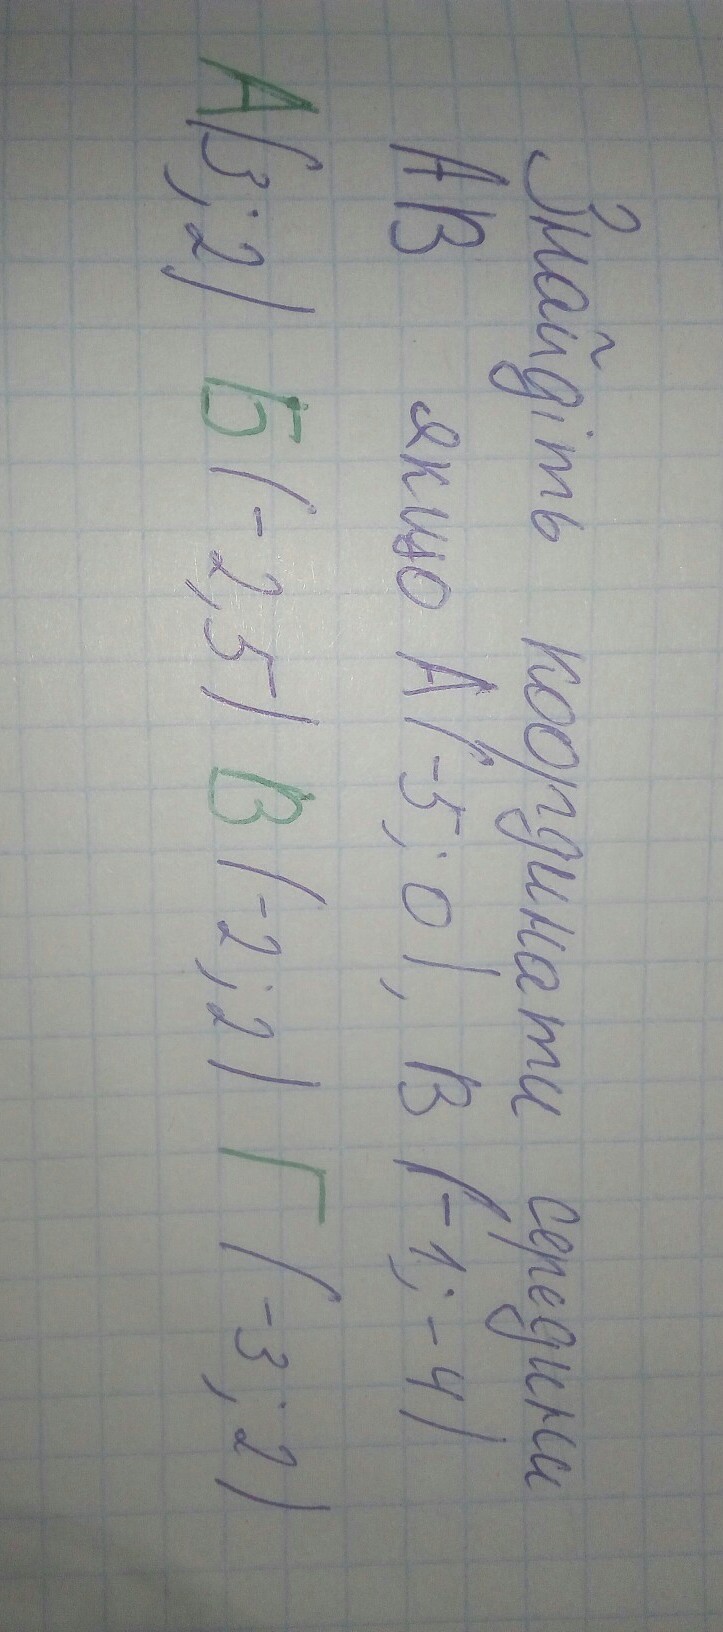 Знайдіть координати середини
АВ якщо А(-5; 0), В (-1; -4)
А(3; 2) Б(-2,5) В(-2; 2) Г(-3; 2)